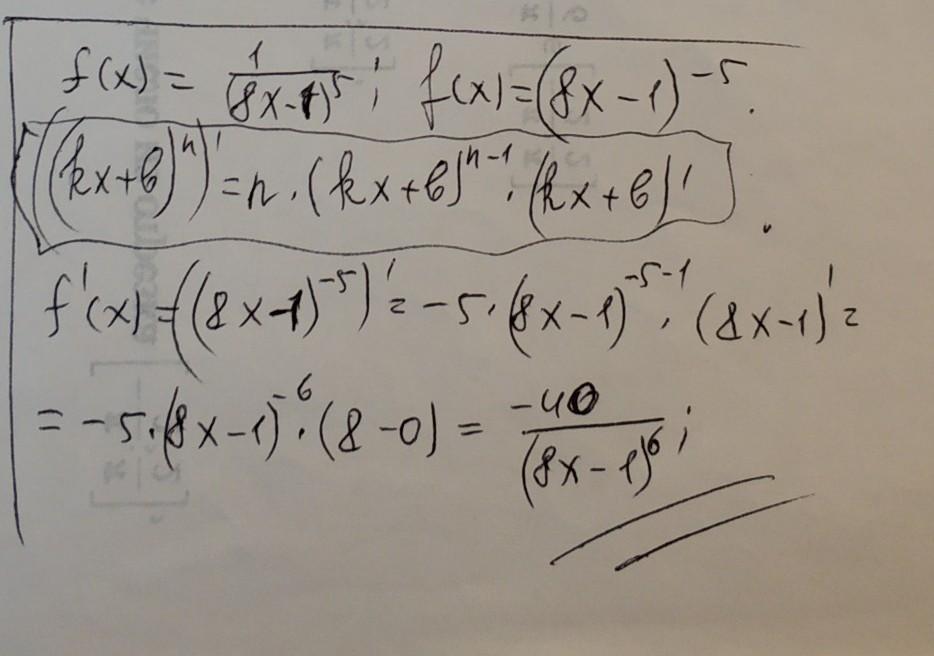 f(x) = 1/(8x-1)^5; f(x)=(8x-1)^-5.
((kx+b)^n)' = n·(kx+b)^n-1·(kx+b)'.
f'(x)=((8x-1)^-5)' = -5·(8x-1)^-5-1·(8x-1)' =
= -5·(8x-1)^-6·(8-0) = -40/(8x-1)^6;